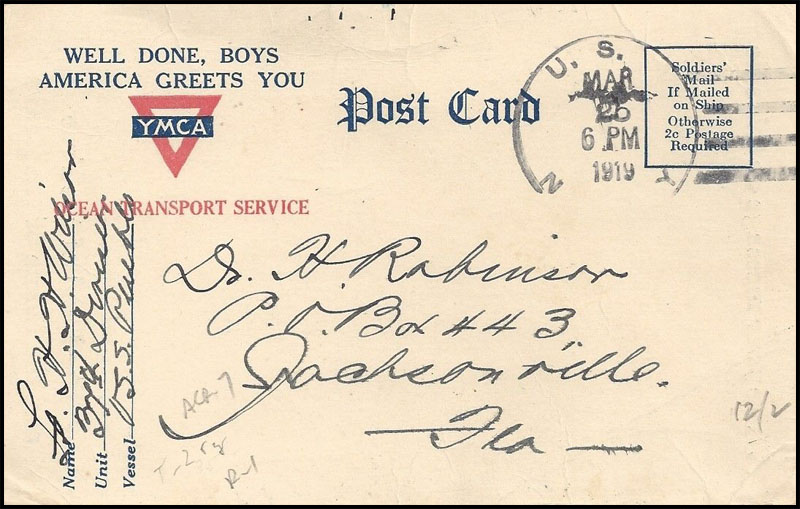 WELL DONE, BOYS
AMERICA GREETS YOU
YMCA
OCEAN TRANSPORT SERVICE
Post Card
U. S.
MAR
6 PM
1919
N
Soldiers'
Mail
If Mailed
on Ship
Otherwise
2c Postage
Required
Dr. H. Robinson
P. O. Box 443,
Jacksonville.
Fla
Name H. H. Wilson
Unit
Vessel U.S.S. Pueblo
12/2
R-1